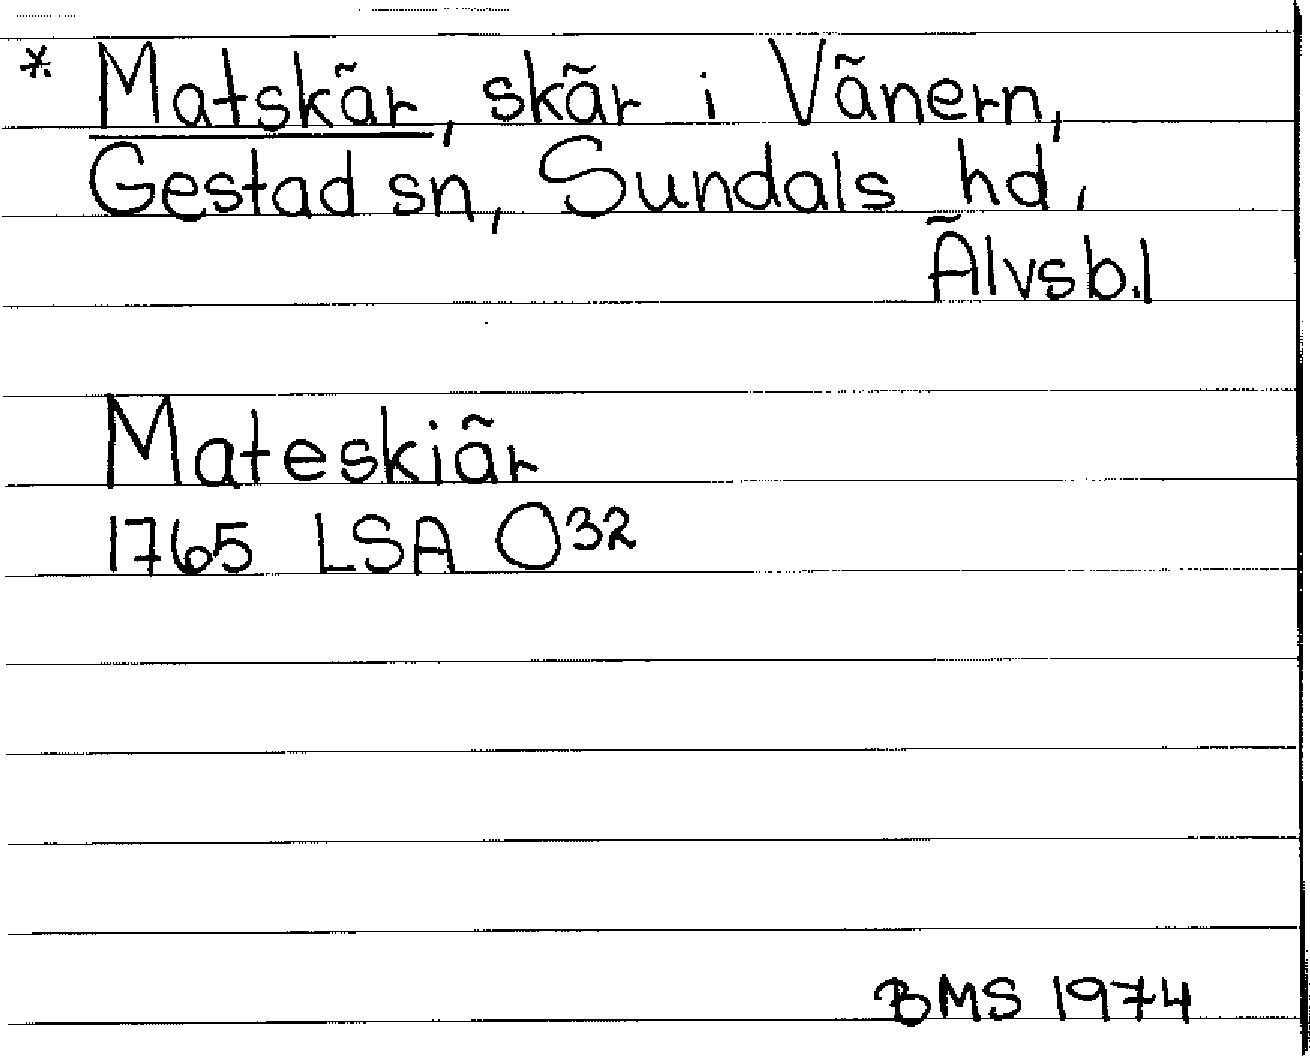 * Matskär, skär i Vänern,
Gestad sn, Sundals hd,
Älvsb.l
Mateskiär
1765 LSA O32
BMS 1974